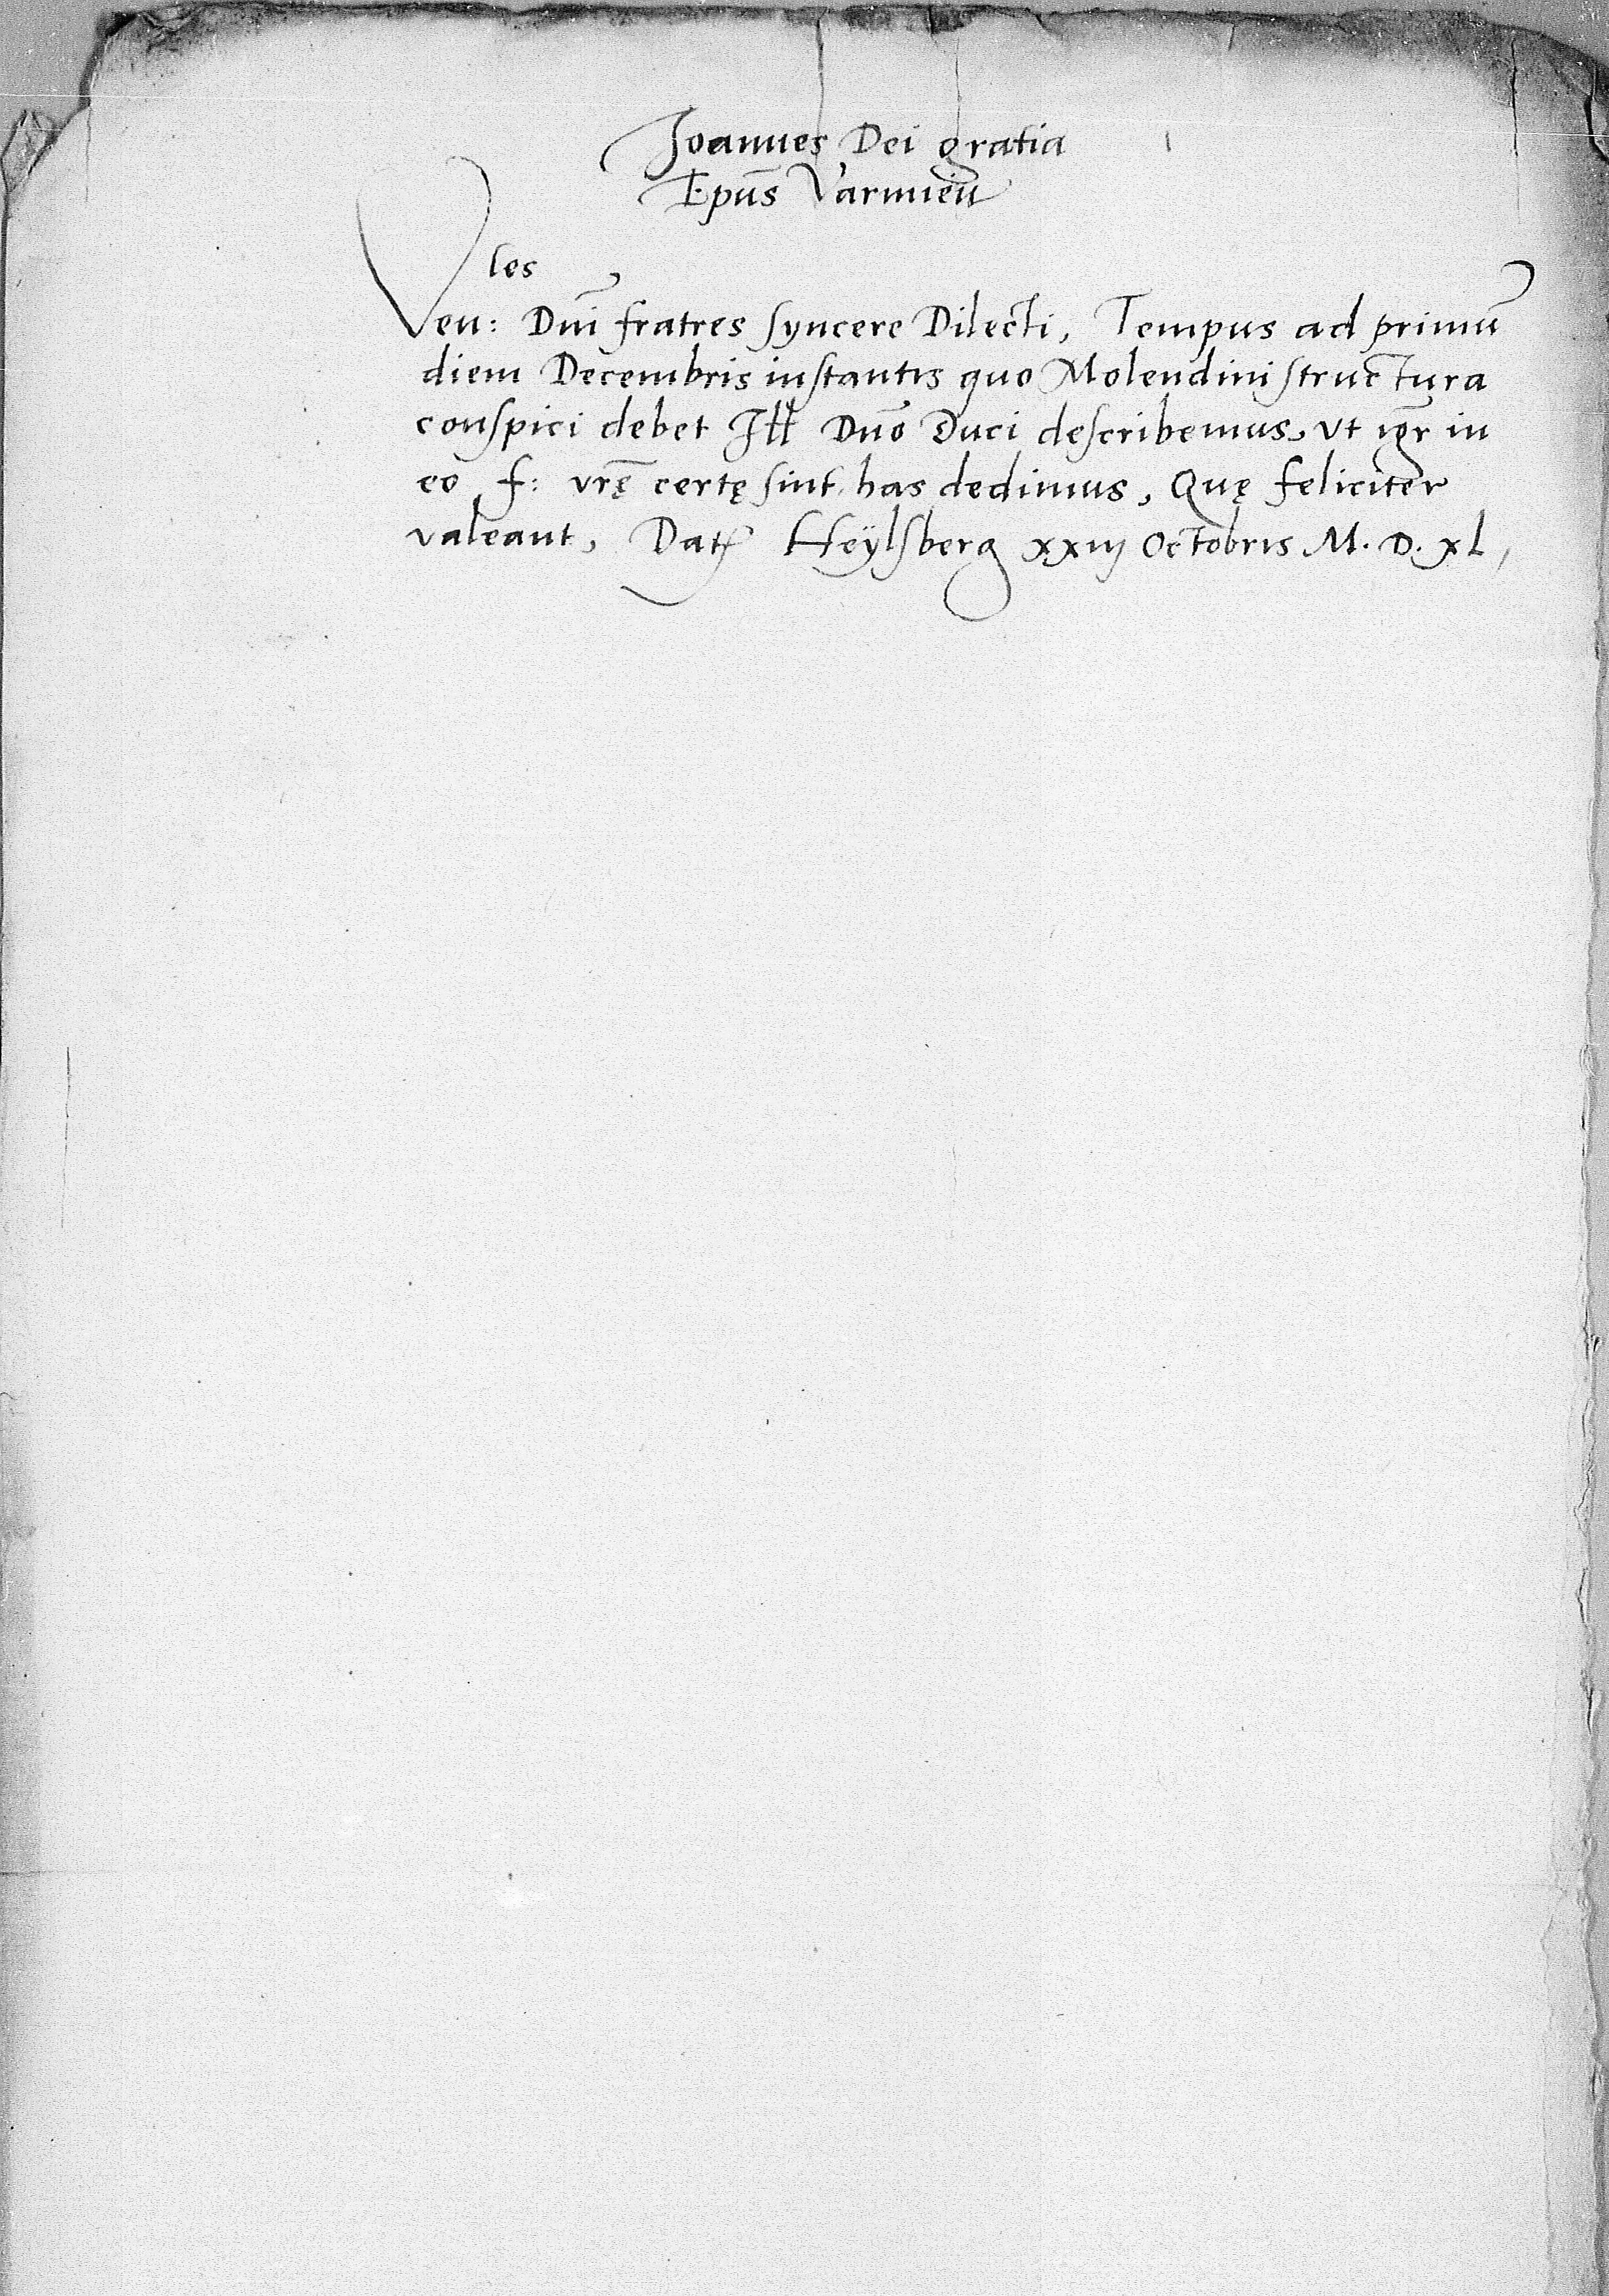 Joannes Dei gratia
Epūs Varmieñ
les
Ven: Dnĩ fratres syncere Dilecti, Tempus ad primū
diem Decembris instantis quo Molendini structura
conspici debet Ill Dnō Duci describemus, vt igr̄ in
eo f: vrę̄ certę sint, has dedimus, Quę feliciter
valeant, Dat Heÿlsberg xxiij Octobris M. D. xL,